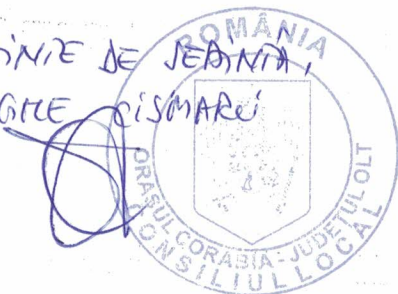 DE ȘEDINȚA,
CISMARU
ROMÂNIA
ORAȘUL CORABIA - JUDEȚUL OLT
CONSILIUL LOCAL